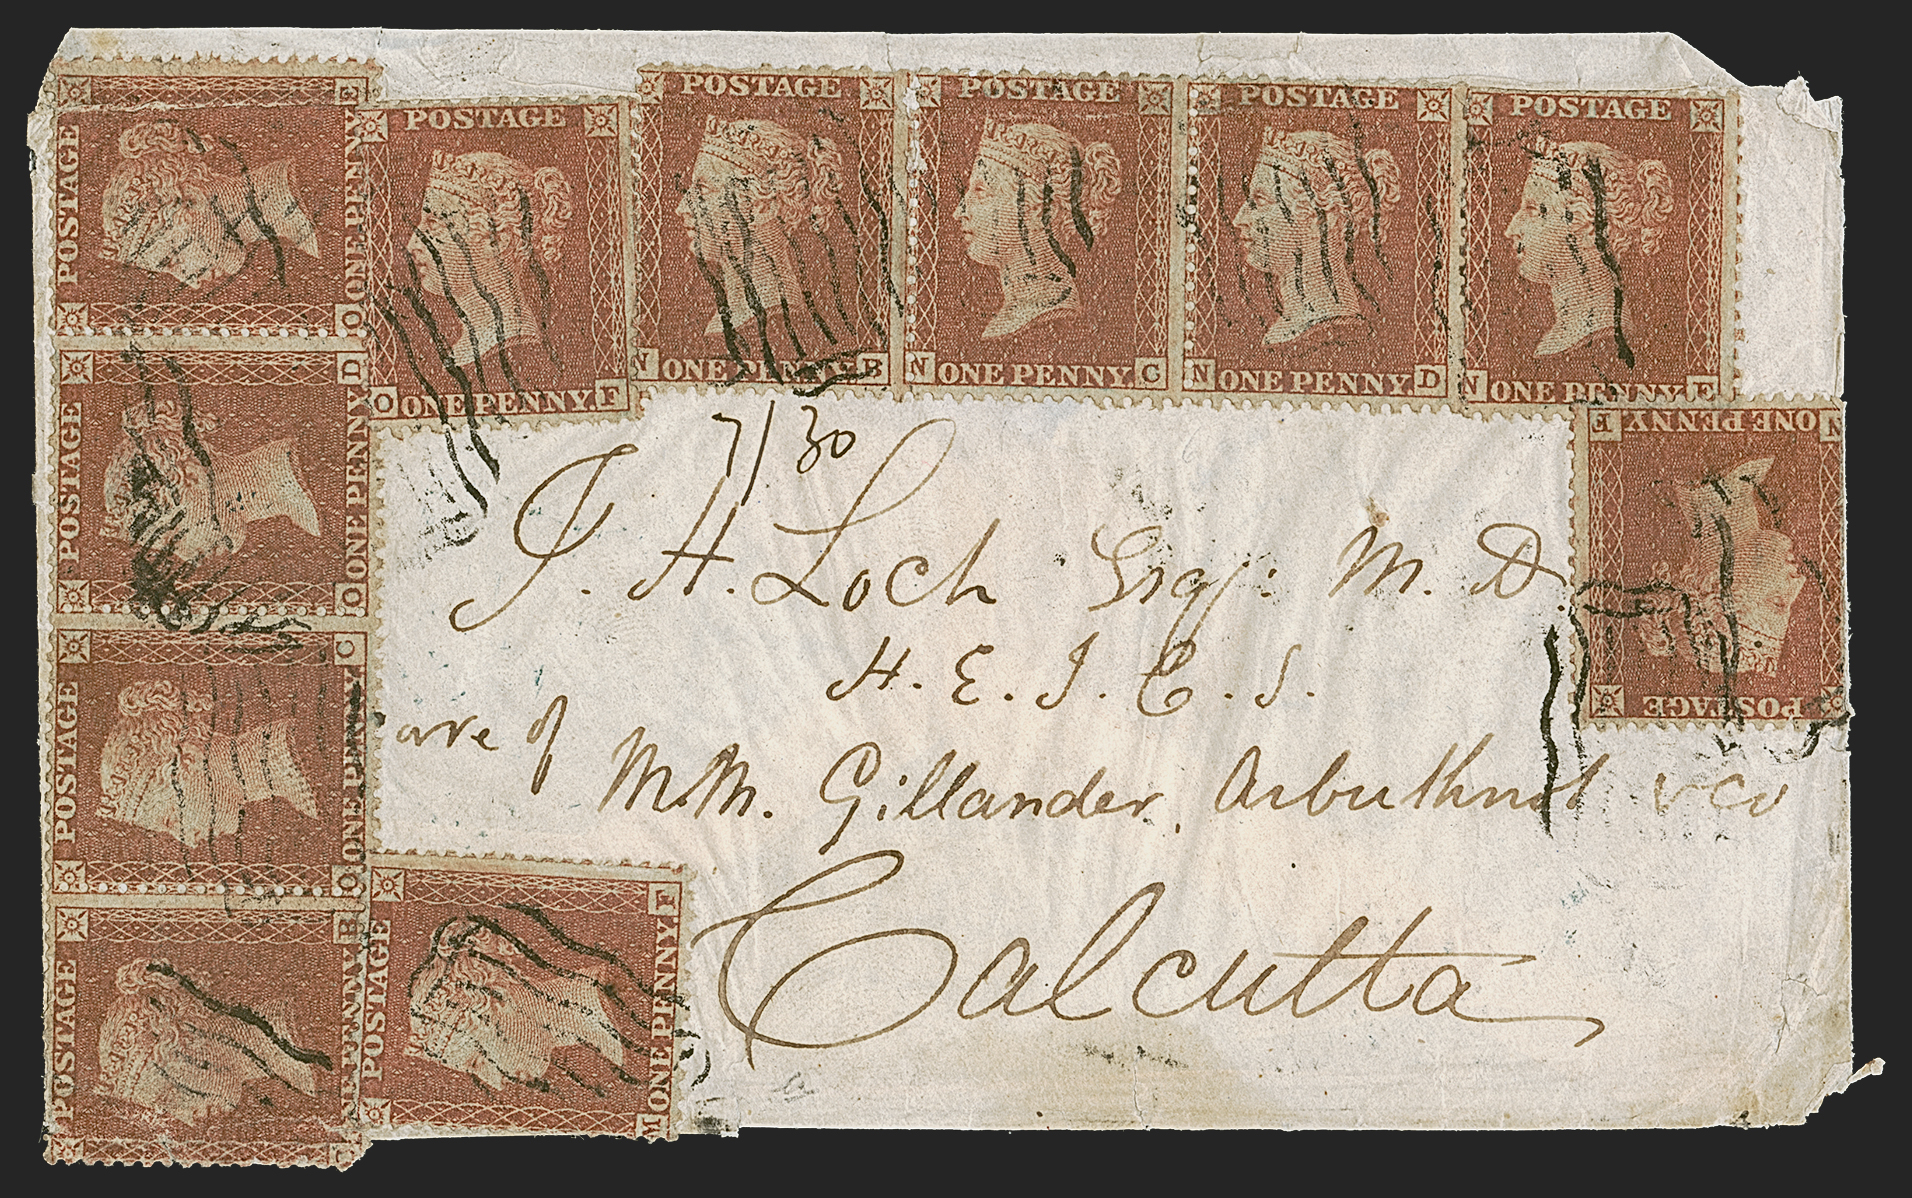 POSTAGE
E
O ONE PENNY
POSTAGE
O ONE PENNY F
POSTAGE
N ONE PENNY B
POSTAGE
N ONE PENNY C
POSTAGE
N ONE PENNY D
POSTAGE
N ONE PENNY E
POSTAGE
N ONE PENNY F
POSTAGE
D
O ONE PENNY
POSTAGE
C
O ONE PENNY
POSTAGE
B
ONE PENNY
POSTAGE
F
M ONE PENNY
7/30
J. H. Loch Esqr. M. D.
H. E. I. C. S.
Care of
M.M. Gillander, Arbuthnot & Co
Calcutta